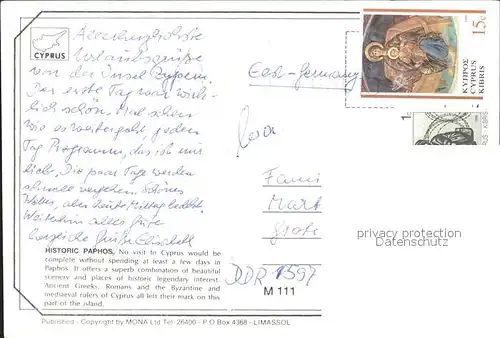 CYPRUS
Allerherzlichste
Urlaubsgrüße
von der Insel Zypern.
Der erste Tag war wirk-
lich schön. Mal sehen
wie es weitergeht, jeden
Tag Programm, das ist mir
liebe. Die paar Tage werden
schnell vergehen. Schönes
Wetter, aber heute Mittag bedeckt.
Weiterhin alles Gute
herzliche Grüße
HISTORIC PAPHOS. No visit to Cyprus would be
complete without spending at least a few days in
Paphos. It offers a superb combination of beautiful
scenery and places of historic legendary interest.
Ancient Greeks, Romans and the Byzantine and
mediaeval rulers of Cyprus all left their mark on this
part of the island.
Published - Copyright by MONA Ltd Tel. 26400 - P O Box 4368 - LIMASSOL
East-Germany
Fami
Mart
DDR 1597
M 111
15c
ΚΥΠΡΟΣ
CYPRUS
KIBRIS
1c
privacy protection
Datenschutz